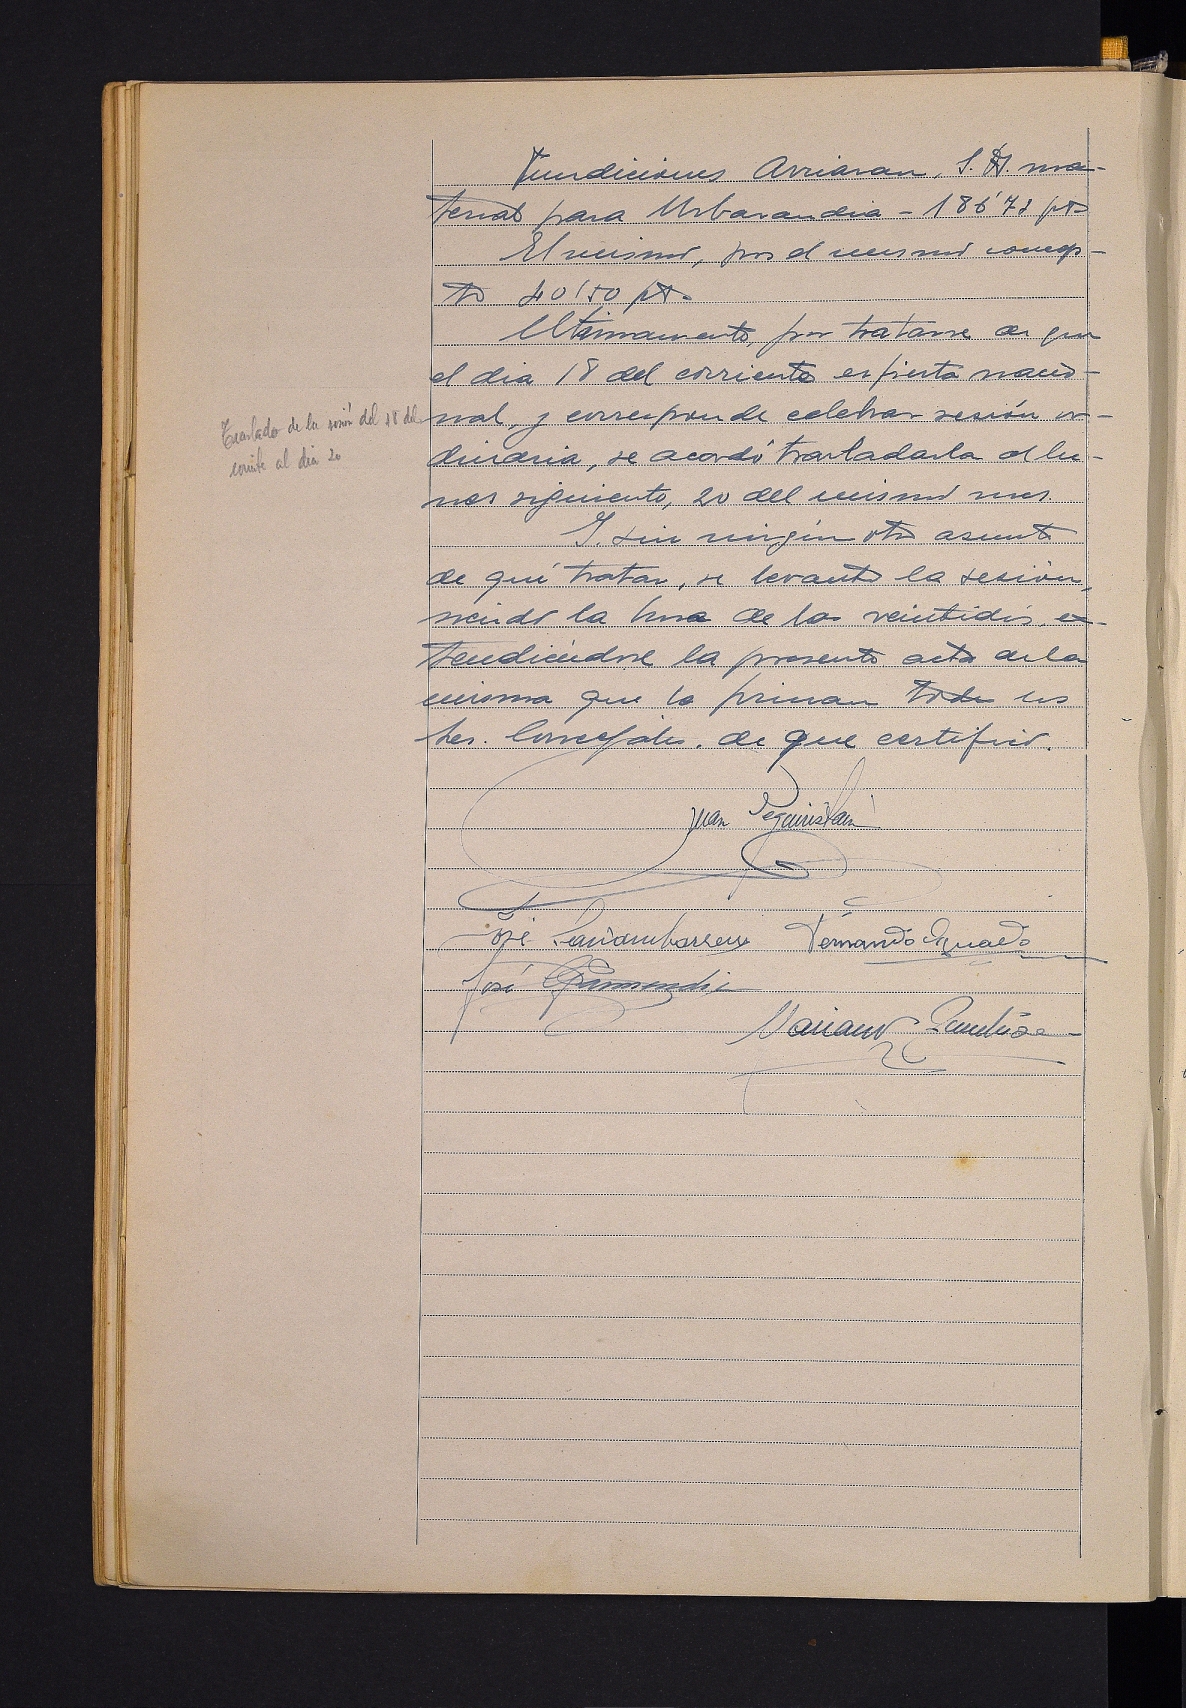 Fundiciones Arriaran, S.A. ma-
terial para Urbarandia - 186'78 pts
El mismo, por el mismo concep-
to 40'50 pts.
Ultimamente, por tratarse de que
el dia 18 del corriente es fiesta nacio-
nal, y corresponde celebrar sesión or-
dinaria, se acordó trasladarla al lu-
nes siguiente, 20 del mismo mes.
Traslado de la sesión del 18 del
corrite al dia 20
Y sin ningún otro asunto
de qué tratar, se levantó la sesión,
siendo la hora de las veintidós, ex-
tendiéndose la presente acta de la
misma que la firman todos los
Sres. Concejales, de que certifico.
Juan Peguiristain
José Fernando Aguado
José Garmendia
Mariano